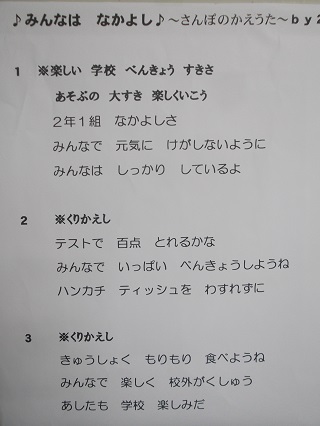 ♪みんなは なかよし♪～さんぽのかえうた～by2
1 ※楽しい 学校 べんきょう すきさ
あそぶの 大すき 楽しくいこう
2年1組 なかよしさ
みんなで 元気に けがしないように
みんなは しっかり しているよ
2 ※くりかえし
テストで 百点 とれるかな
みんなで いっぱい べんきょうしようね
ハンカチ ティッシュを わすれずに
3 ※くりかえし
きゅうしょく もりもり 食べようね
みんなで 楽しく 校外がくしゅう
あしたも 学校 楽しみだ